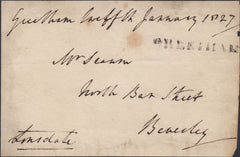 Greetham Twelfth January 1827
GREETHAM
Mr Seaum
North Bar Street
Beverley
Lonsdale